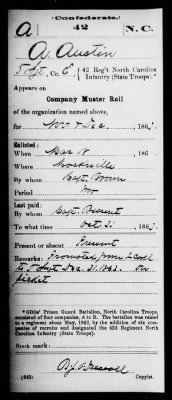 (Confederate.)
A 42 N.C.
A. Austin
5 Sgt, Co. E, 42 Reg't North Carolina
Infantry (State Troops).*
Appears on
Company Muster Roll
of the organization named above,
for Nov & Dec, 186
Enlisted:
When Mar 18, 186
Where Mocksville
By whom Capt. Brown
Period War
Last paid:
By whom Capt. Bryant
To what time Oct 31, 186
Present or absent Present
Remarks: Promoted from 2 Corpl
to 5 Sergt Dec. 31, 1862. On
picket
*Gibbs' Prison Guard Battalion, North Carolina Troops,
consisted of four companies, A to D. The battalion was raised
to a regiment about May, 1862, by the addition of six companies
of recruits and designated the 42d Regiment North
Carolina Infantry (State Troops).
Book mark:
(642) Copyist.